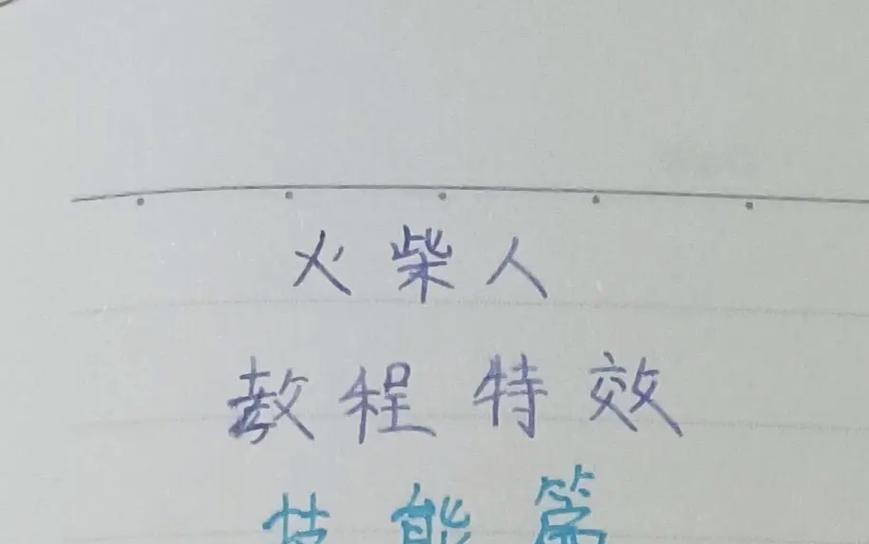 火柴人
教程特效
技能篇